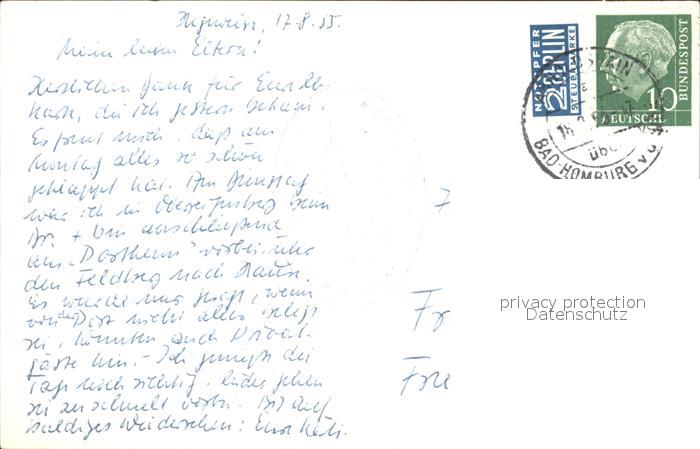 17.8.55.
Mein lieben Eltern!
Herzlichen Dank für Eure
karte, die ich gestern bekam.
Es freut mich, daß am
Montag alles so schön
geklappt hat. Am Dienstag
war ich in beim
Dr. + bin anschließend
am "Dortheim" vorbei, über
den Feldberg nach Hause.
Es wurde mir gesagt, wenn
von Dort nicht alles belegt
sei, könnten auch Privat-
gäste hin. - Ich genieße die
Tage noch richtig, leider gehen
sie zu schnell vorbei. Bis auf
baldiges Wiedersehen: Eure
NOTOPFER
2 BERLIN
STEUERMARKE
DEUTSCHE
BUNDESPOST
10
BAD-HOMBURG v d
über
Fr
Fre
privacy protection
Datenschutz